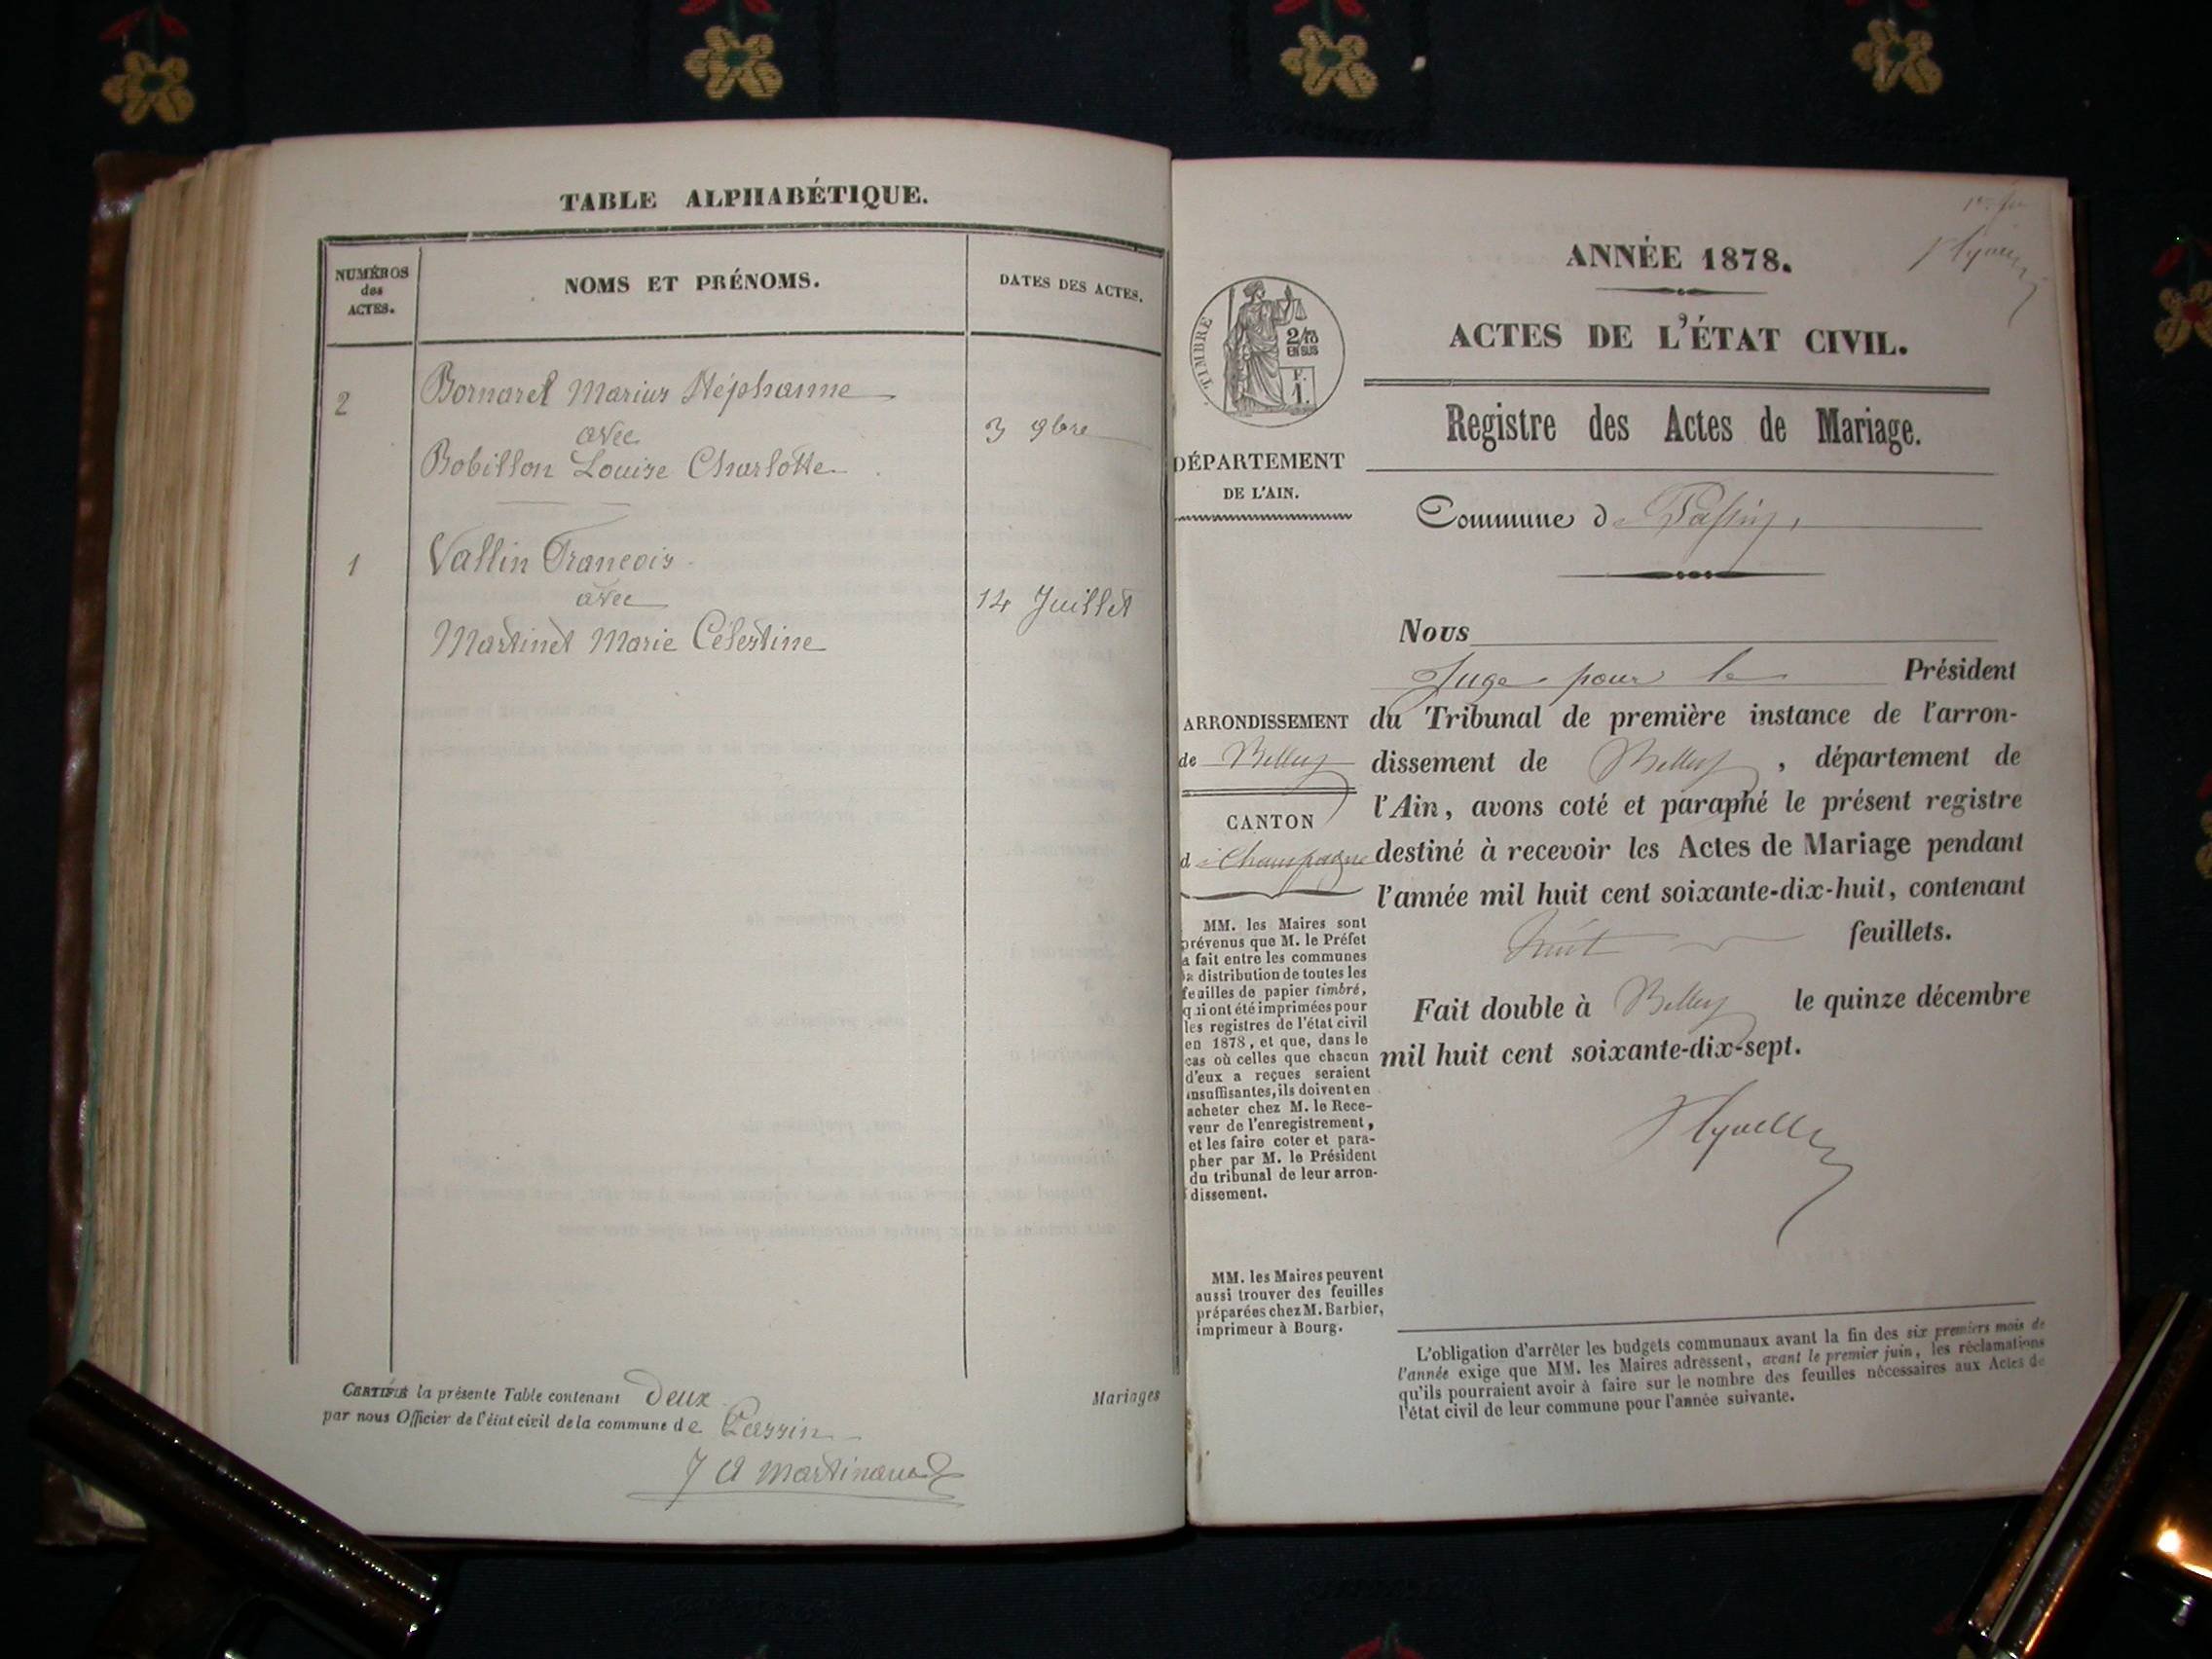 TABLE ALPHABÉTIQUE.
NUMÉROS
des
ACTES.
NOMS ET PRÉNOMS.
DATES DES ACTES.
2
Bornarel Marius Stéphanne
avec
Bobillon Louise Charlotte
3 9bre
1
Vallin Francois
avec
Martinet Marie Célestine
14 Juillet
CERTIFIÉ la présente Table contenant Deux Mariages
par nous Officier de l'état civil de la commune de Passin
J A Martinaud
ANNÉE 1878.
ACTES DE L'ÉTAT CIVIL.
Registre des Actes de Mariage.
TIMBRE
2/10
EN SUS
F.
1.
DÉPARTEMENT
DE L'AIN.
Commune de Passin,
ARRONDISSEMENT
de Belley
CANTON
de Champagne
MM. les Maires sont
prévenus que M. le Préfet
a fait entre les communes
la distribution de toutes les
feuilles de papier timbré,
qui ont été imprimées pour
les registres de l'état civil
en 1878, et que, dans le
cas où celles que chacun
d'eux a reçues seraient
insuffisantes, ils doivent en
acheter chez M. le Rece-
veur de l'enregistrement,
et les faire coter et para-
pher par M. le Président
du tribunal de leur arron-
dissement.
MM. les Maires peuvent
aussi trouver des feuilles
préparées chez M. Barbier,
imprimeur à Bourg.
Nous
Juge pour le Président
du Tribunal de première instance de l'arron-
dissement de Belley, département de
l'Ain, avons coté et paraphé le présent registre
destiné à recevoir les Actes de Mariage pendant
l'année mil huit cent soixante-dix-huit, contenant
huit feuillets.
Fait double à Belley le quinze décembre
mil huit cent soixante-dix-sept.
L'obligation d'arrêter les budgets communaux avant la fin des six premiers mois de
l'année exige que MM. les Maires adressent, avant le premier juin, les réclamations
qu'ils pourraient avoir à faire sur le nombre des feuilles nécessaires aux Actes de
l'état civil de leur commune pour l'année suivante.